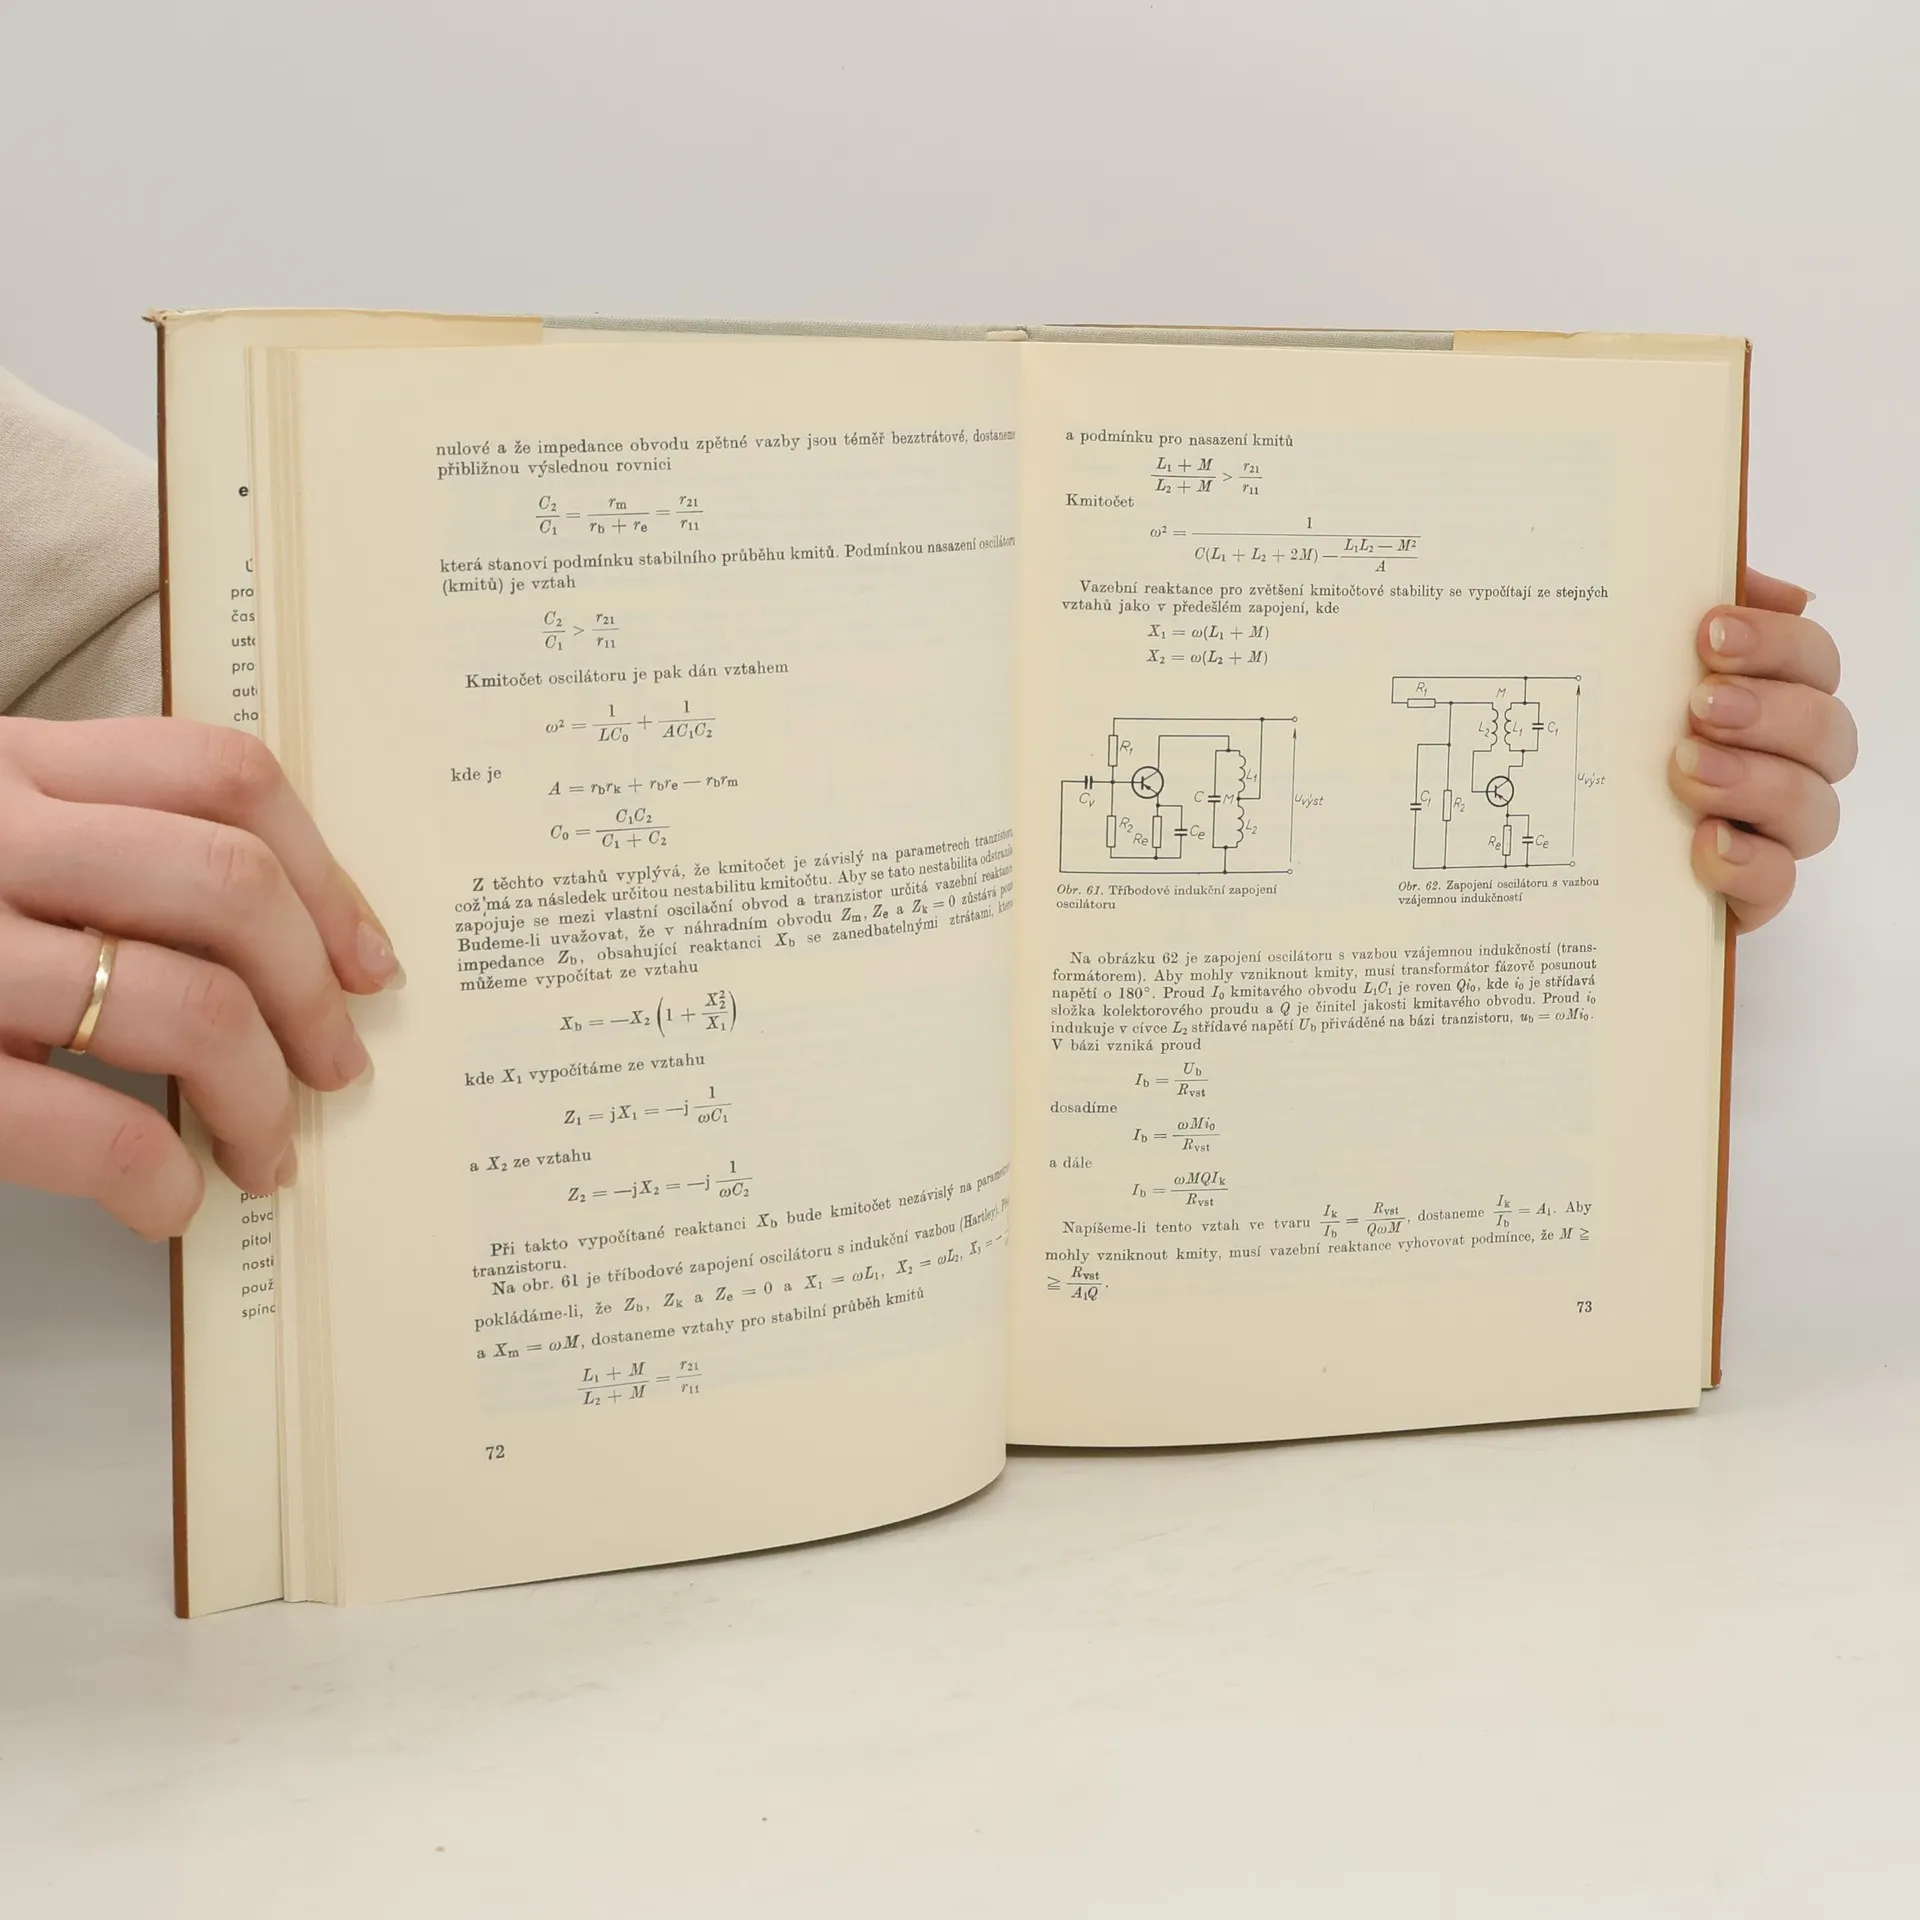 e
Ú
pro
čas
usto
pro
auto
cha
obvo
pitol
nosti
použ
spínc
nulové a že impedance obvodu zpětné vazby jsou téměř bezztrátové, dostaneme
přibližnou výslednou rovnici
C₂/C₁ = rₘ/(r_b + rₑ) = r₂₁/r₁₁
která stanoví podmínku stabilního průběhu kmitů. Podmínkou nasazení oscilátoru
(kmitů) je vztah
C₂/C₁ > r₂₁/r₁₁
Kmitočet oscilátoru je pak dán vztahem
ω² = 1/LC₀ + 1/AC₁C₂
kde je
A = r_b r_k + r_b rₑ — r_b rₘ
C₀ = C₁C₂/(C₁ + C₂)
Z těchto vztahů vyplývá, že kmitočet je závislý na parametrech tranzistoru,
což má za následek určitou nestabilitu kmitočtu. Aby se tato nestabilita odstranila
zapojuje se mezi vlastní oscilační obvod a tranzistor určitá vazební reaktance
Budeme-li uvažovat, že v náhradním obvodu Zₘ, Zₑ a Z_k = 0 zůstává pouze
impedance Z_b, obsahující reaktanci X_b se zanedbatelnými ztrátami, kterou
můžeme vypočítat ze vztahu
X_b = —X₂ (1 + X₂²/X₁)
kde X₁ vypočítáme ze vztahu
Z₁ = jX₁ = —j 1/ωC₁
a X₂ ze vztahu
Z₂ = —jX₂ = —j 1/ωC₂
Při takto vypočítané reaktanci X_b bude kmitočet nezávislý na parametrech
tranzistoru.
Na obr. 61 je tříbodové zapojení oscilátoru s indukční vazbou (Hartley).
pokládáme-li, že Z_b, Z_k a Zₑ = 0 a X₁ = ωL₁, X₂ = ωL₂, X₃ = —
a Xₘ = ωM, dostaneme vztahy pro stabilní průběh kmitů
(L₁ + M)/(L₂ + M) = r₂₁/r₁₁
72
a podmínku pro nasazení kmitů
(L₁ + M)/(L₂ + M) > r₂₁/r₁₁
Kmitočet
ω² = 1/(C(L₁ + L₂ + 2M) — (L₁L₂ — M²)/A)
Vazební reaktance pro zvětšení kmitočtové stability se vypočítají ze stejných
vztahů jako v předešlém zapojení, kde
X₁ = ω(L₁ + M)
X₂ = ω(L₂ + M)
R₁ Cᵥ R₂ Rₑ Cₑ C M L₁ L₂ u_výst
Obr. 61. Tříbodové indukční zapojení
oscilátoru
R₁ M L₂ L₁ C₁ C₁ R₂ Rₑ Cₑ u_výst
Obr. 62. Zapojení oscilátoru s vazbou
vzájemnou indukčností
Na obrázku 62 je zapojení oscilátoru s vazbou vzájemnou indukčností (trans-
formátorem). Aby mohly vzniknout kmity, musí transformátor fázově posunout
napětí o 180°. Proud I₀ kmitavého obvodu L₁C₁ je roven Qi₀, kde i₀ je střídavá
složka kolektorového proudu a Q je činitel jakosti kmitavého obvodu. Proud i₀
indukuje v cívce L₂ střídavé napětí U_b přiváděné na bázi tranzistoru, u_b = ωMi₀.
V bázi vzniká proud
I_b = U_b/R_vst
dosadíme
I_b = ωMi₀/R_vst
a dále
I_b = ωMQI_k/R_vst
Napíšeme-li tento vztah ve tvaru I_k/I_b = R_vst/QωM, dostaneme I_k/I_b = A_i. Aby
mohly vzniknout kmity, musí vazební reaktance vyhovovat podmínce, že M ≧
≧ R_vst/A_iQ.
73